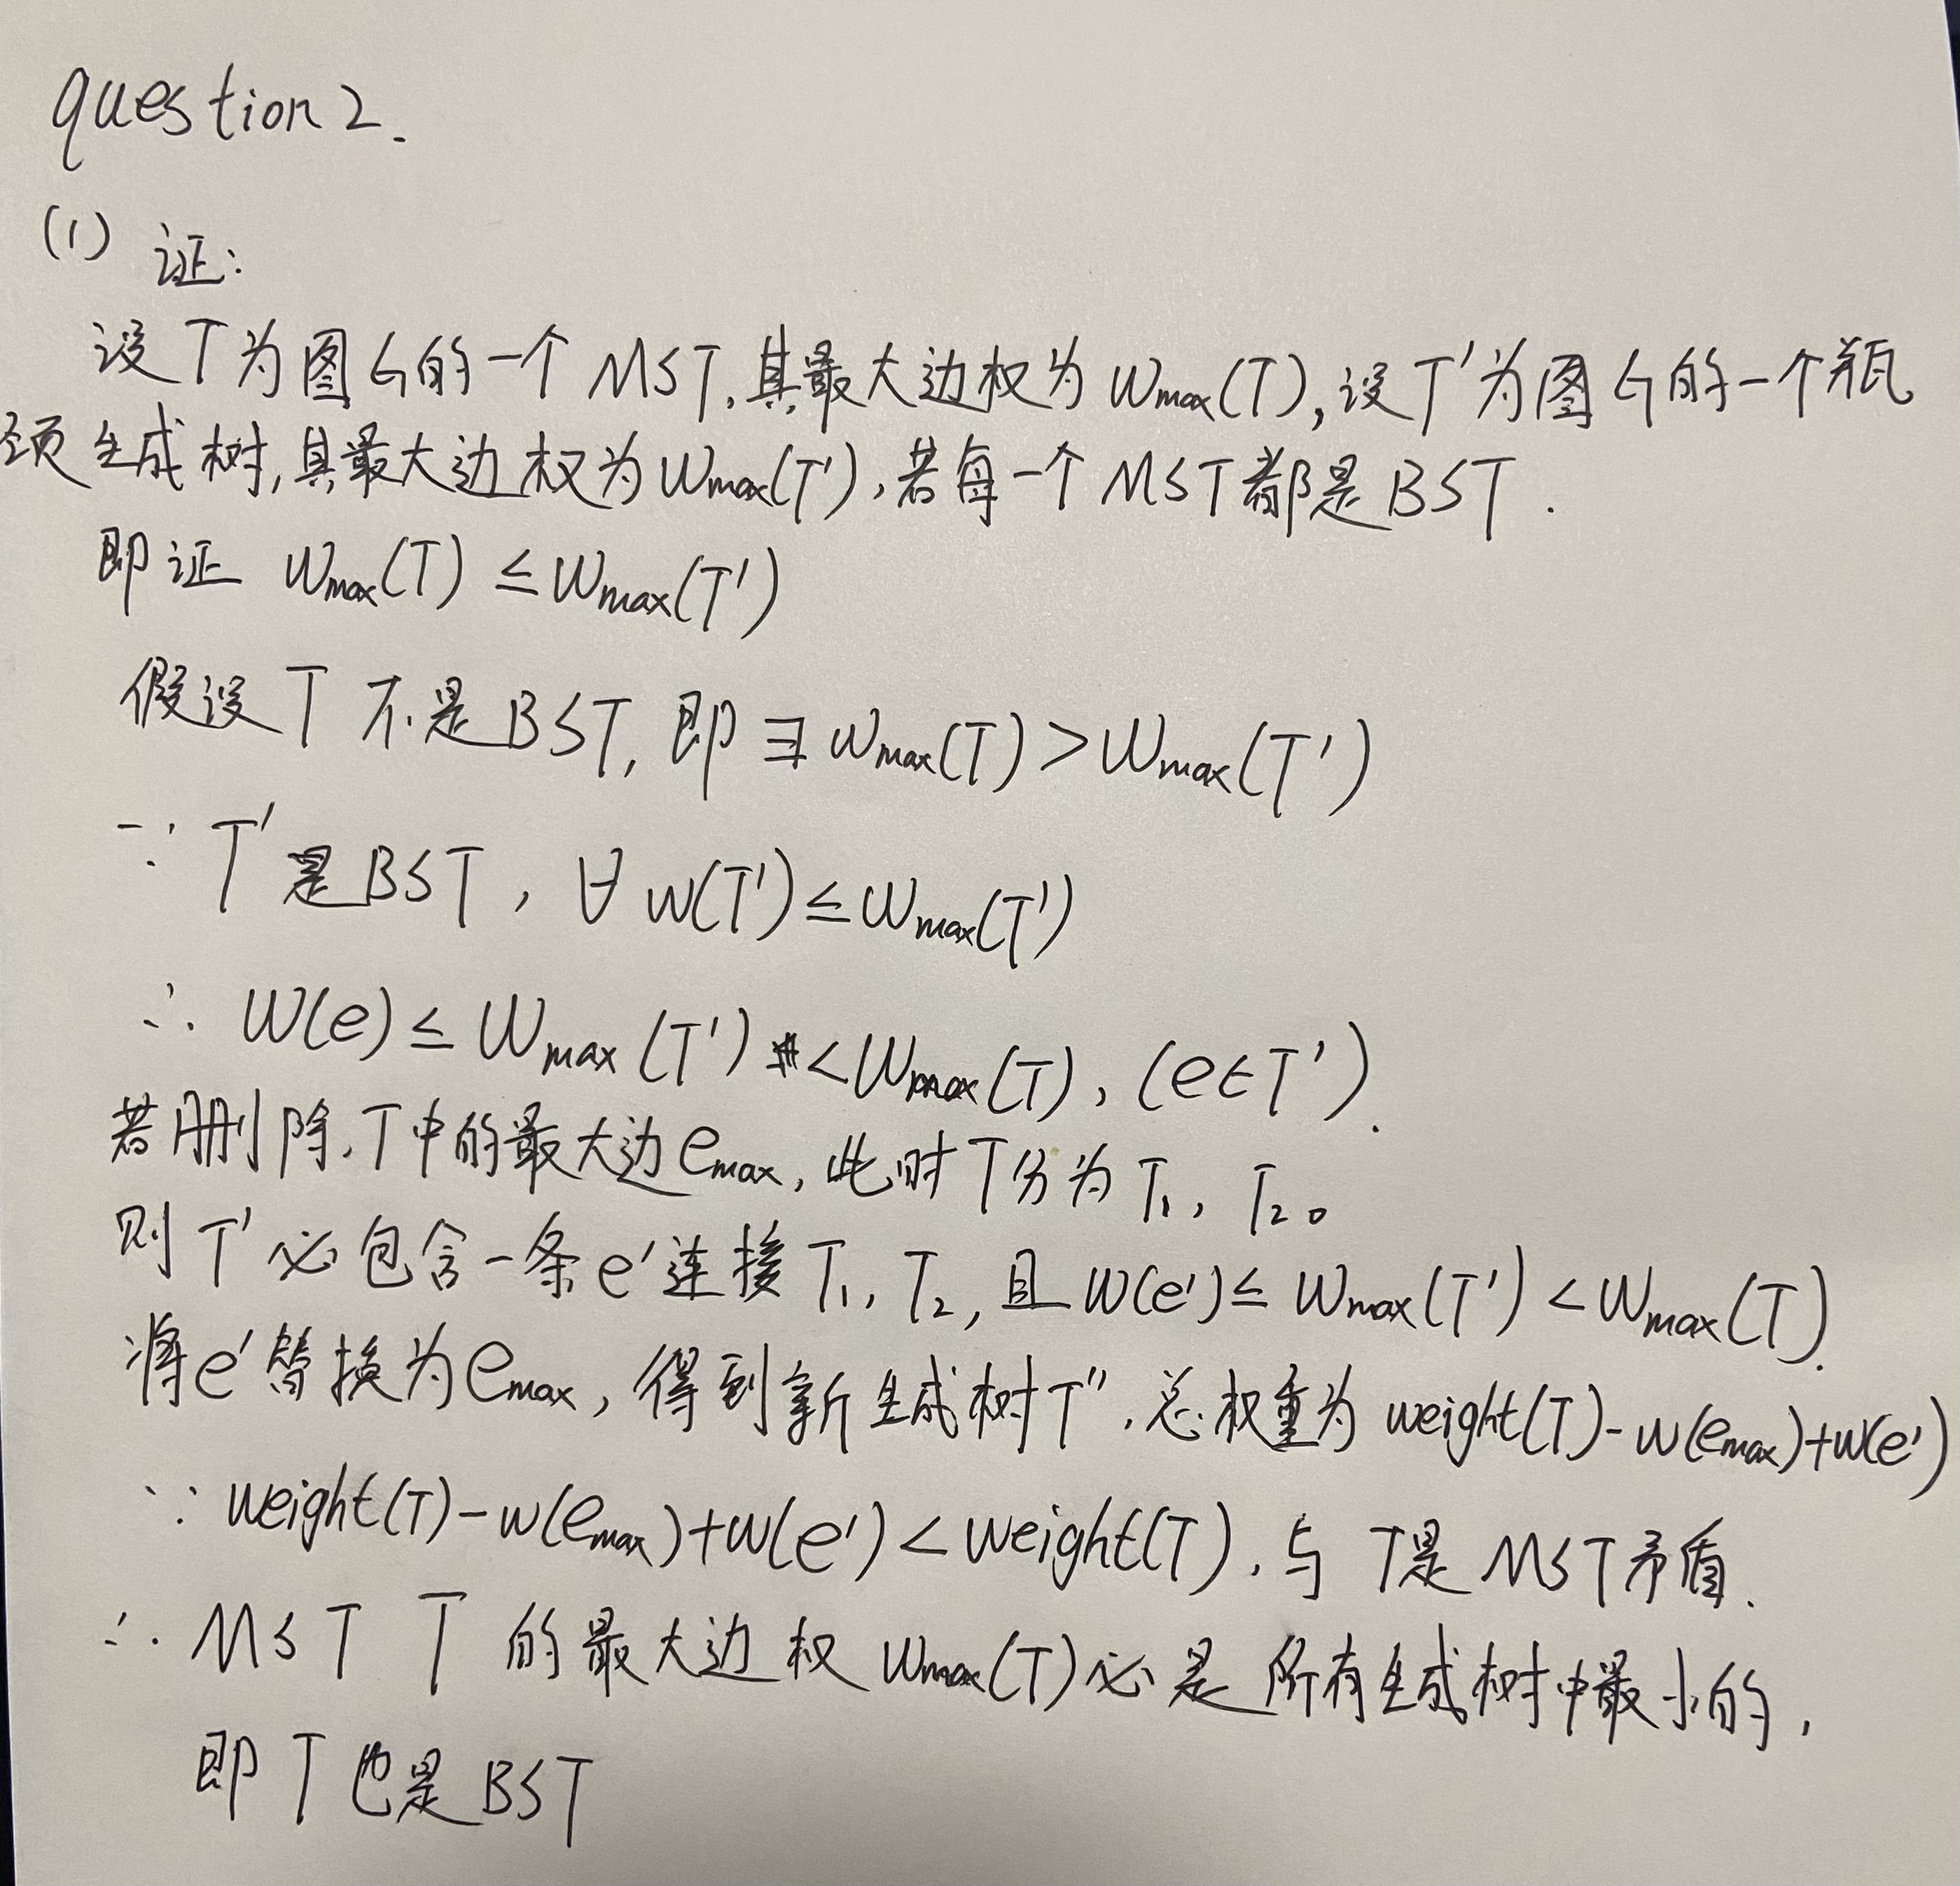 question 2.
(1) 证:
设T为图G的一个MST,其最大边权为Wmax(T),设T'为图G的一个瓶
颈生成树,其最大边权为Wmax(T'),若每一个MST都是BST.
即证 Wmax(T) ≤ Wmax(T')
假设T不是BST,即∃ Wmax(T) > Wmax(T')
∵ T'是BST, ∀ w(T') ≤ Wmax(T')
∴ W(e) ≤ Wmax(T') < Wmax(T), (e∈T').
若删除T中的最大边emax,此时T分为T1, T2。
则T'必包含一条e'连接T1, T2,且W(e') ≤ Wmax(T') < Wmax(T).
将e'替换为emax,得到新生成树T",总权重为weight(T)-w(emax)+w(e')
∵ weight(T)-w(emax)+w(e') < weight(T),与T是MST矛盾.
∴ MST T 的最大边权Wmax(T)必是所有生成树中最小的,
即T也是BST